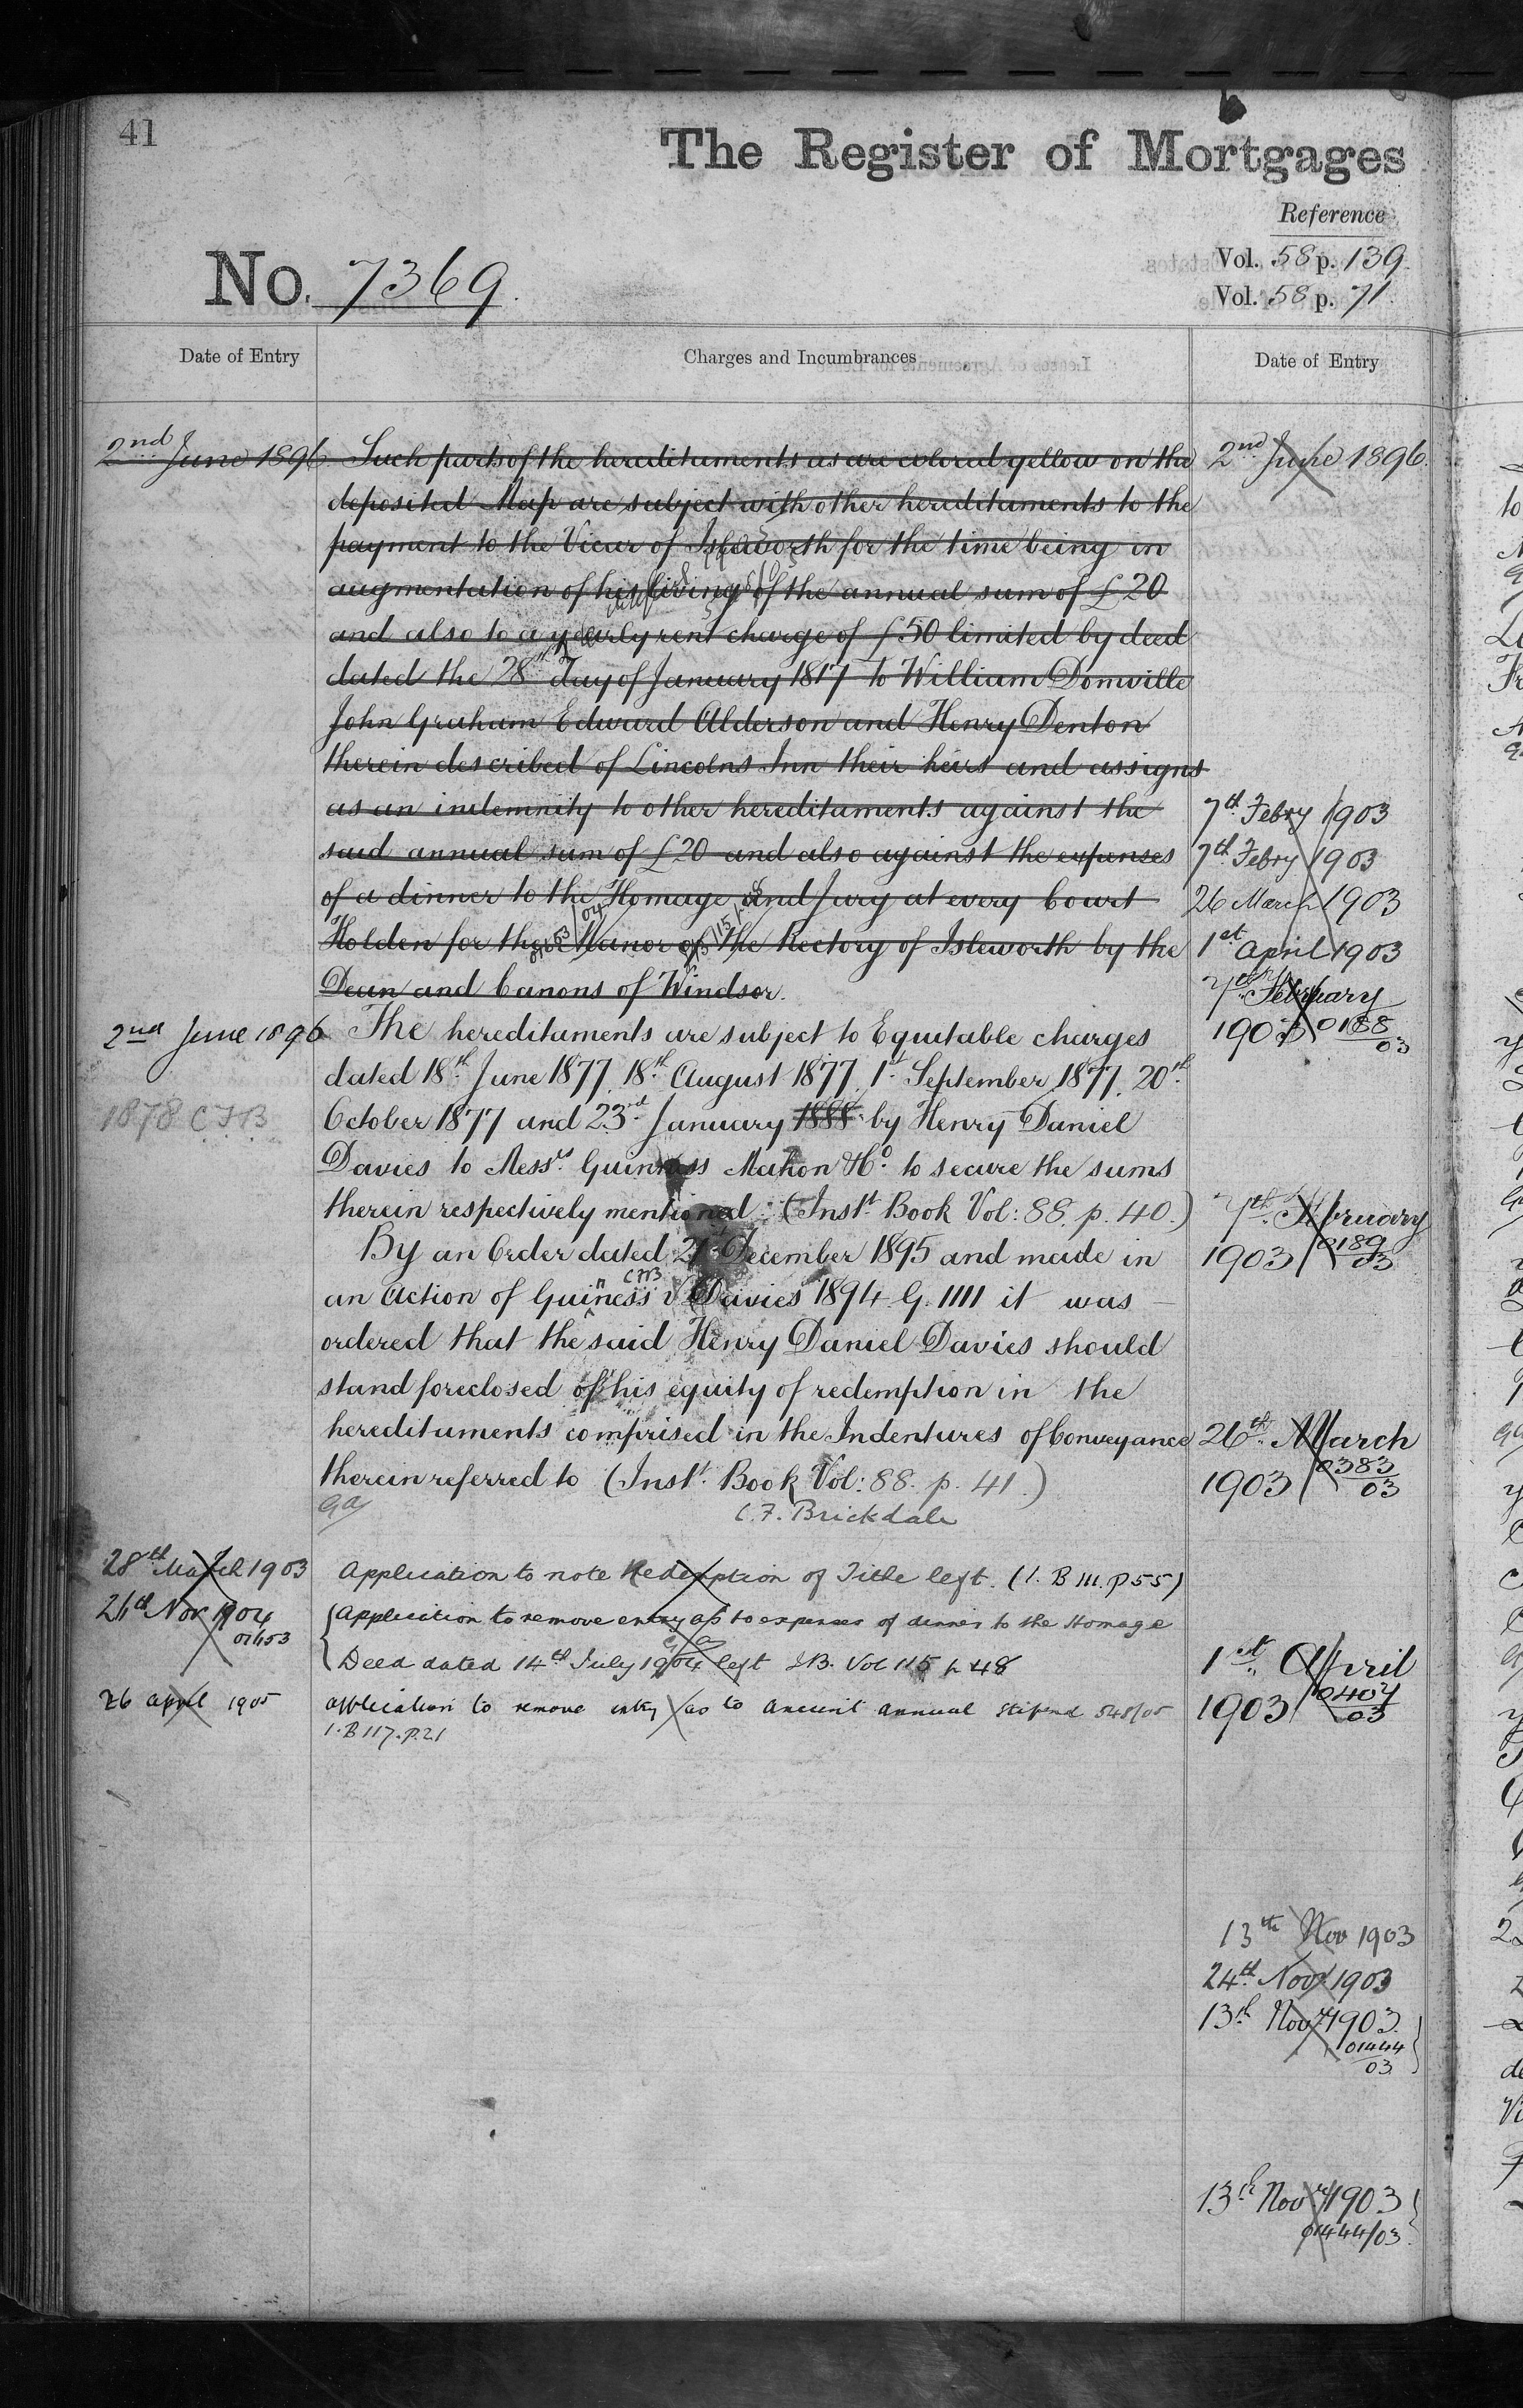 41
The Register of Mortgages
Reference
Vol. 58 p. 139.
Vol. 58 p. 71.
No. 7369.
Date of Entry
Charges and Incumbrances
Date of Entry
2nd June 1896
Such parts of the hereditaments as are colored yellow on the
deposited Map are subject with other hereditaments to the
payment to the Vicar of Isleworth for the time being in
augmentation of his living of the annual sum of £20
and also to a yearly rent charge of £50 limited by deed
dated the 28th Day of January 1817 to William Domville
John Graham Edward Alderson and Henry Denton
therein described of Lincolns Inn their heirs and assigns
as an indemnity to other hereditaments against the
said annual sum of £20 and also against the expenses
of a dinner to the Homage and Jury at every Court
Holden for the Manor of the Rectory of Isleworth by the
Dean and Canons of Windsor.
2nd June 1896
The hereditaments are subject to Equitable charges
dated 18th June 1877, 18th August 1877, 1st September 1877, 20th
1878 CFB
October 1877 and 23rd January 1888 by Henry Daniel
Davies to Messrs Guinness Mahon & Co. to secure the sums
therein respectively mentioned. (Inst. Book Vol: 88. p. 40.)
By an Order dated 21st December 1895 and made in
CFB
an Action of Guinness v Davies 1894. G. 1111 it was
ordered that the said Henry Daniel Davies should
stand foreclosed of his equity of redemption in the
hereditaments comprised in the Indentures of Conveyance
therein referred to (Inst. Book Vol: 88. p. 41.)
C. F. Brickdale
28th March 1903
Application to note Redemption of Title left. (I. B 111. p 55)
Nov 1904
01653
Application to remove entry as to expenses of dinner to the Homage
Deed dated 14th July 1904 left I.B. Vol 115 p 48
26 April 1905
application to remove entry as to ancient annual stipend 548/05
I. B 117. p. 21
2nd June 1896.
7th Febry 1903
7th Febry 1903
26 March 1903
1st April 1903
7th February
1903 0188
03
7th February
1903 0189
03
26th March
1903 0383
03
1st April
1903 0407
03
13th Nov 1903
24th Novr 1903
13th Novr 1903
01444
03
13th Novr 1903
01444/03